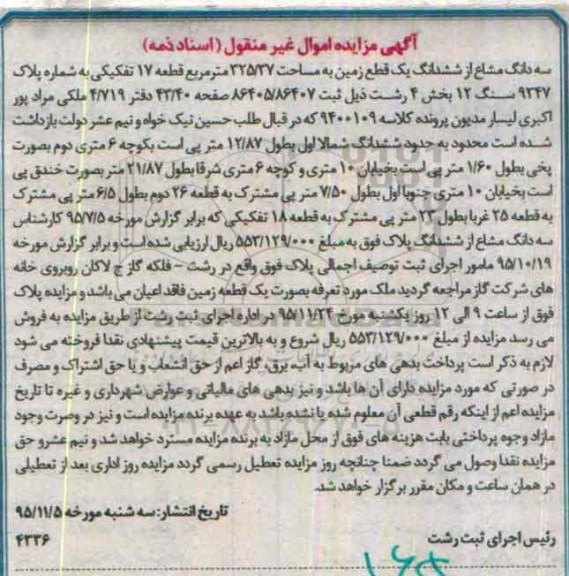 آگهی مزایده اموال غیر منقول (اسناد ذمه)
سه دانگ مشاع از ششدانگ یک قطع زمین به مساحت ۳۲۵/۳۷ مترمربع قطعه ۱۷ تفکیکی به شماره پلاک
۹۳۴۷ سنگ ۱۲ بخش ۴ رشت ذیل ثبت ۸۶۴۰۵/۸۶۴۰۷ صفحه ۴۳/۴۰ دفتر ۴/۷۱۹ ملکی مراد پور
اکبری لیسار مدیون پرونده کلاسه ۹۴۰۰۱۰۹ که در قبال طلب حسین نیک خواه و نیم عشر دولت بازداشت
شده است محدود به حدود ششدانگ شمالا اول بطول ۱۲/۸۷ متر پی است بکوچه ۶ متری دوم بصورت
پخی بطول ۱/۶۰ متر پی است بخیابان ۱۰ متری و کوچه ۶ متری شرقا بطول ۲۱/۸۷ متر بصورت خندق پی
است بخیابان ۱۰ متری جنوبا اول بطول ۷/۵۰ متر پی مشترک به قطعه ۲۶ دوم بطول ۶/۵ متر پی مشترک
به قطعه ۲۵ غربا بطول ۲۳ متر پی مشترک به قطعه ۱۸ تفکیکی که برابر گزارش مورخه ۹۵/۷/۵ کارشناس
سه دانگ مشاع از ششدانگ پلاک فوق به مبلغ ۵۵۳/۱۲۹/۰۰۰ ریال ارزیابی شده است و برابر گزارش مورخه
۹۵/۱۰/۱۹ مامور اجرای ثبت توصیف اجمالی پلاک فوق واقع در رشت - فلکه گاز خ لاکان روبروی خانه
های شرکت گاز مراجعه گردید ملک مورد تعرفه بصورت یک قطعه زمین فاقد اعیان می باشد و مزایده پلاک
فوق از ساعت ۹ الی ۱۲ روز یکشنبه مورخ ۹۵/۱۱/۲۴ در اداره اجرای ثبت رشت از طریق مزایده به فروش
می رسد مزایده از مبلغ ۵۵۳/۱۲۹/۰۰۰ ریال شروع و به بالاترین قیمت پیشنهادی نقدا فروخته می شود
لازم به ذکر است پرداخت بدهی های مربوط به آب، برق، گاز اعم از حق انشعاب و یا حق اشتراک و مصرف
در صورتی که مورد مزایده دارای آن ها باشد و نیز بدهی های مالیاتی و عوارض شهرداری و غیره تا تاریخ
مزایده اعم از اینکه رقم قطعی آن معلوم شده یا نشده باشد به عهده برنده مزایده است و نیز در صورت وجود
مازاد وجوه پرداختی بابت هزینه های فوق از محل مازاد به برنده مزایده مسترد خواهد شد و نیم عشر و حق
مزایده نقدا وصول می گردد ضمنا چنانچه روز مزایده تعطیل رسمی گردد مزایده روز اداری بعد از تعطیلی
در همان ساعت و مکان مقرر برگزار خواهد شد.
تاریخ انتشار: سه شنبه مورخه ۹۵/۱۱/۵
رئیس اجرای ثبت رشت
۴۳۳۶